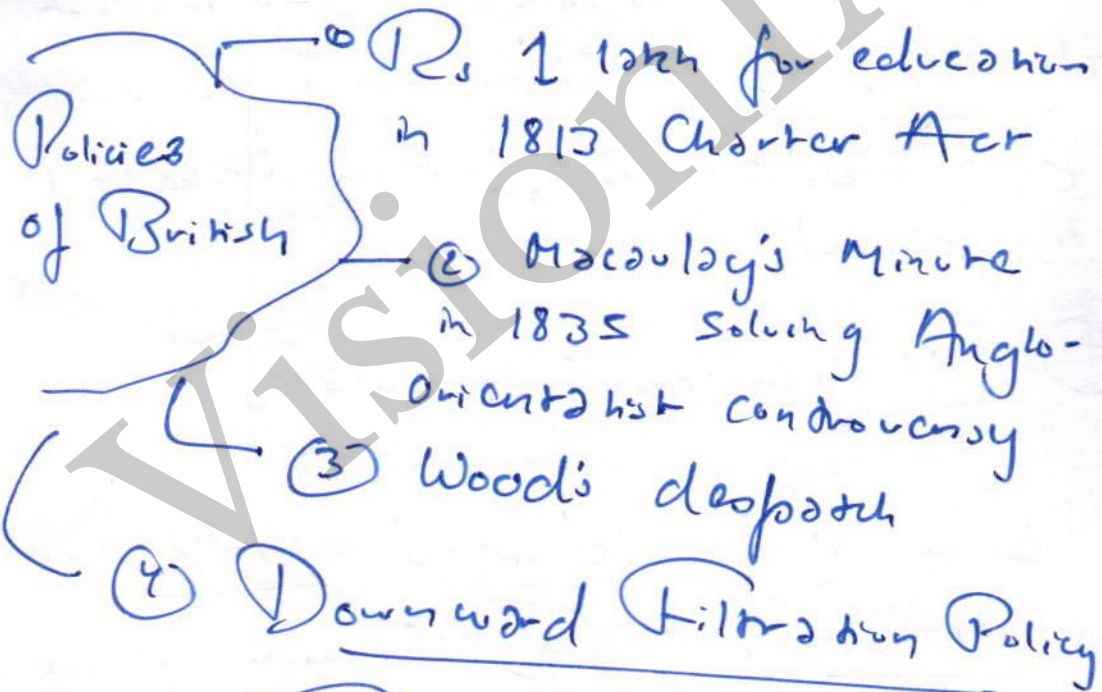 Policies
of British
① Rs 1 lakh for education
in 1813 Charter Act
② Macaulay's Minute
in 1835 solving Anglo-
Orientalist controversy
③ Wood's despatch
④ Downward Filtration Policy
Vision